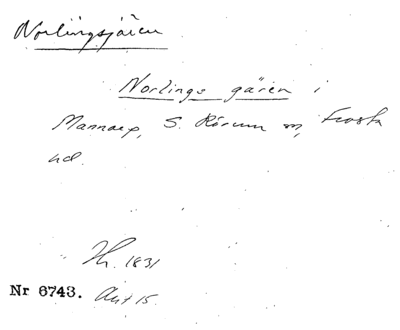 Norlingsjären
Norlings gären i
Mannarp, S. Rörum sn, Frosta
hd.
Hr. 1831
Nr 6743. Akt 15.